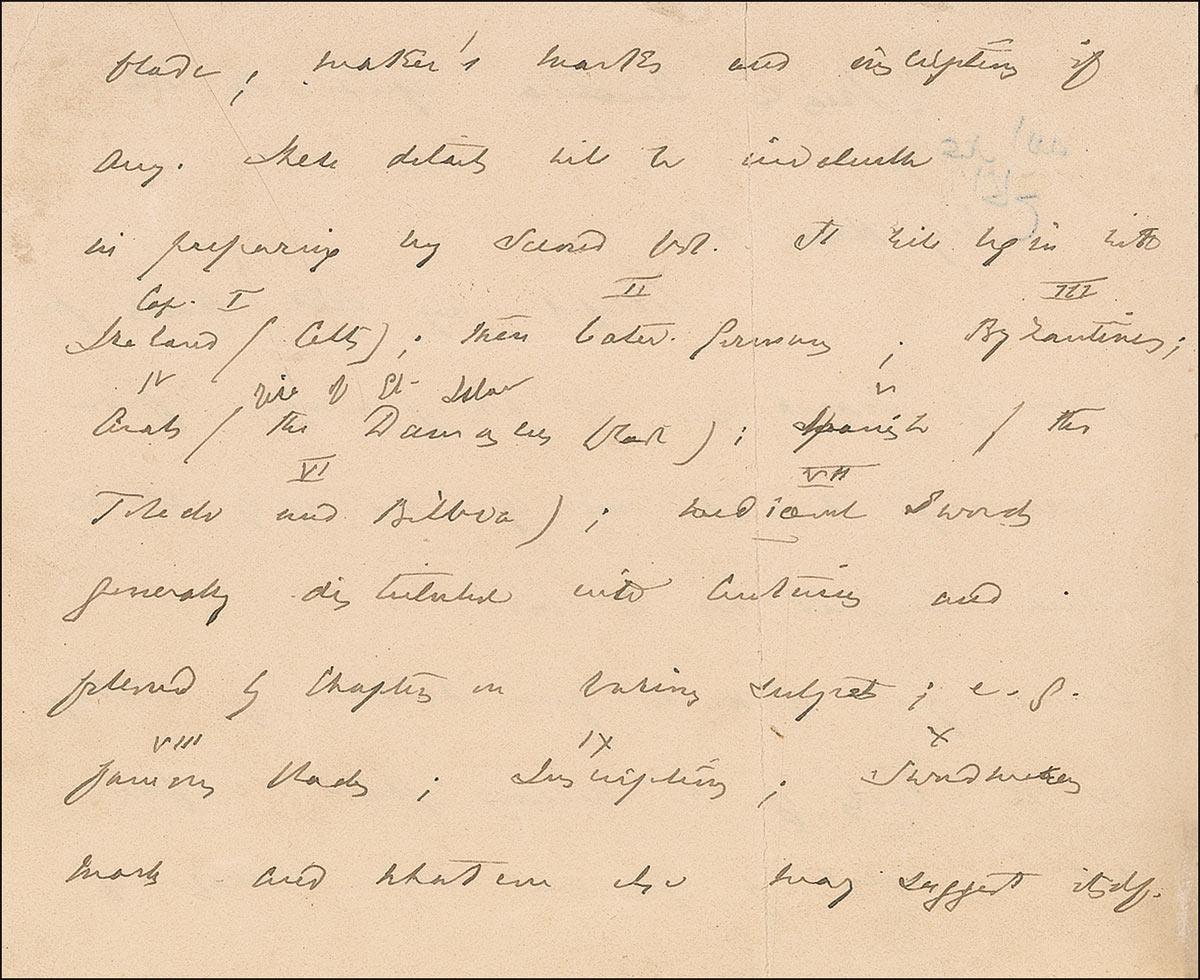 blade; maker's marks and inscriptions if
any. These details will be invaluable
in preparing my second vol. It will begin with
Cap. I II III
Ireland (Celts); then later Germans; Byzantines;
IV rise of El Islam V
Arabs (the Damascus blade); Spanish (the
VI VII
Toledo and Bilboa); mediaeval Swords
generally distributed into Centuries and
followed by Chapters on various subjects; e.g.
VIII IX X
famous blades; Inscriptions; Swordmakers
marks and whatever else may suggest itself.